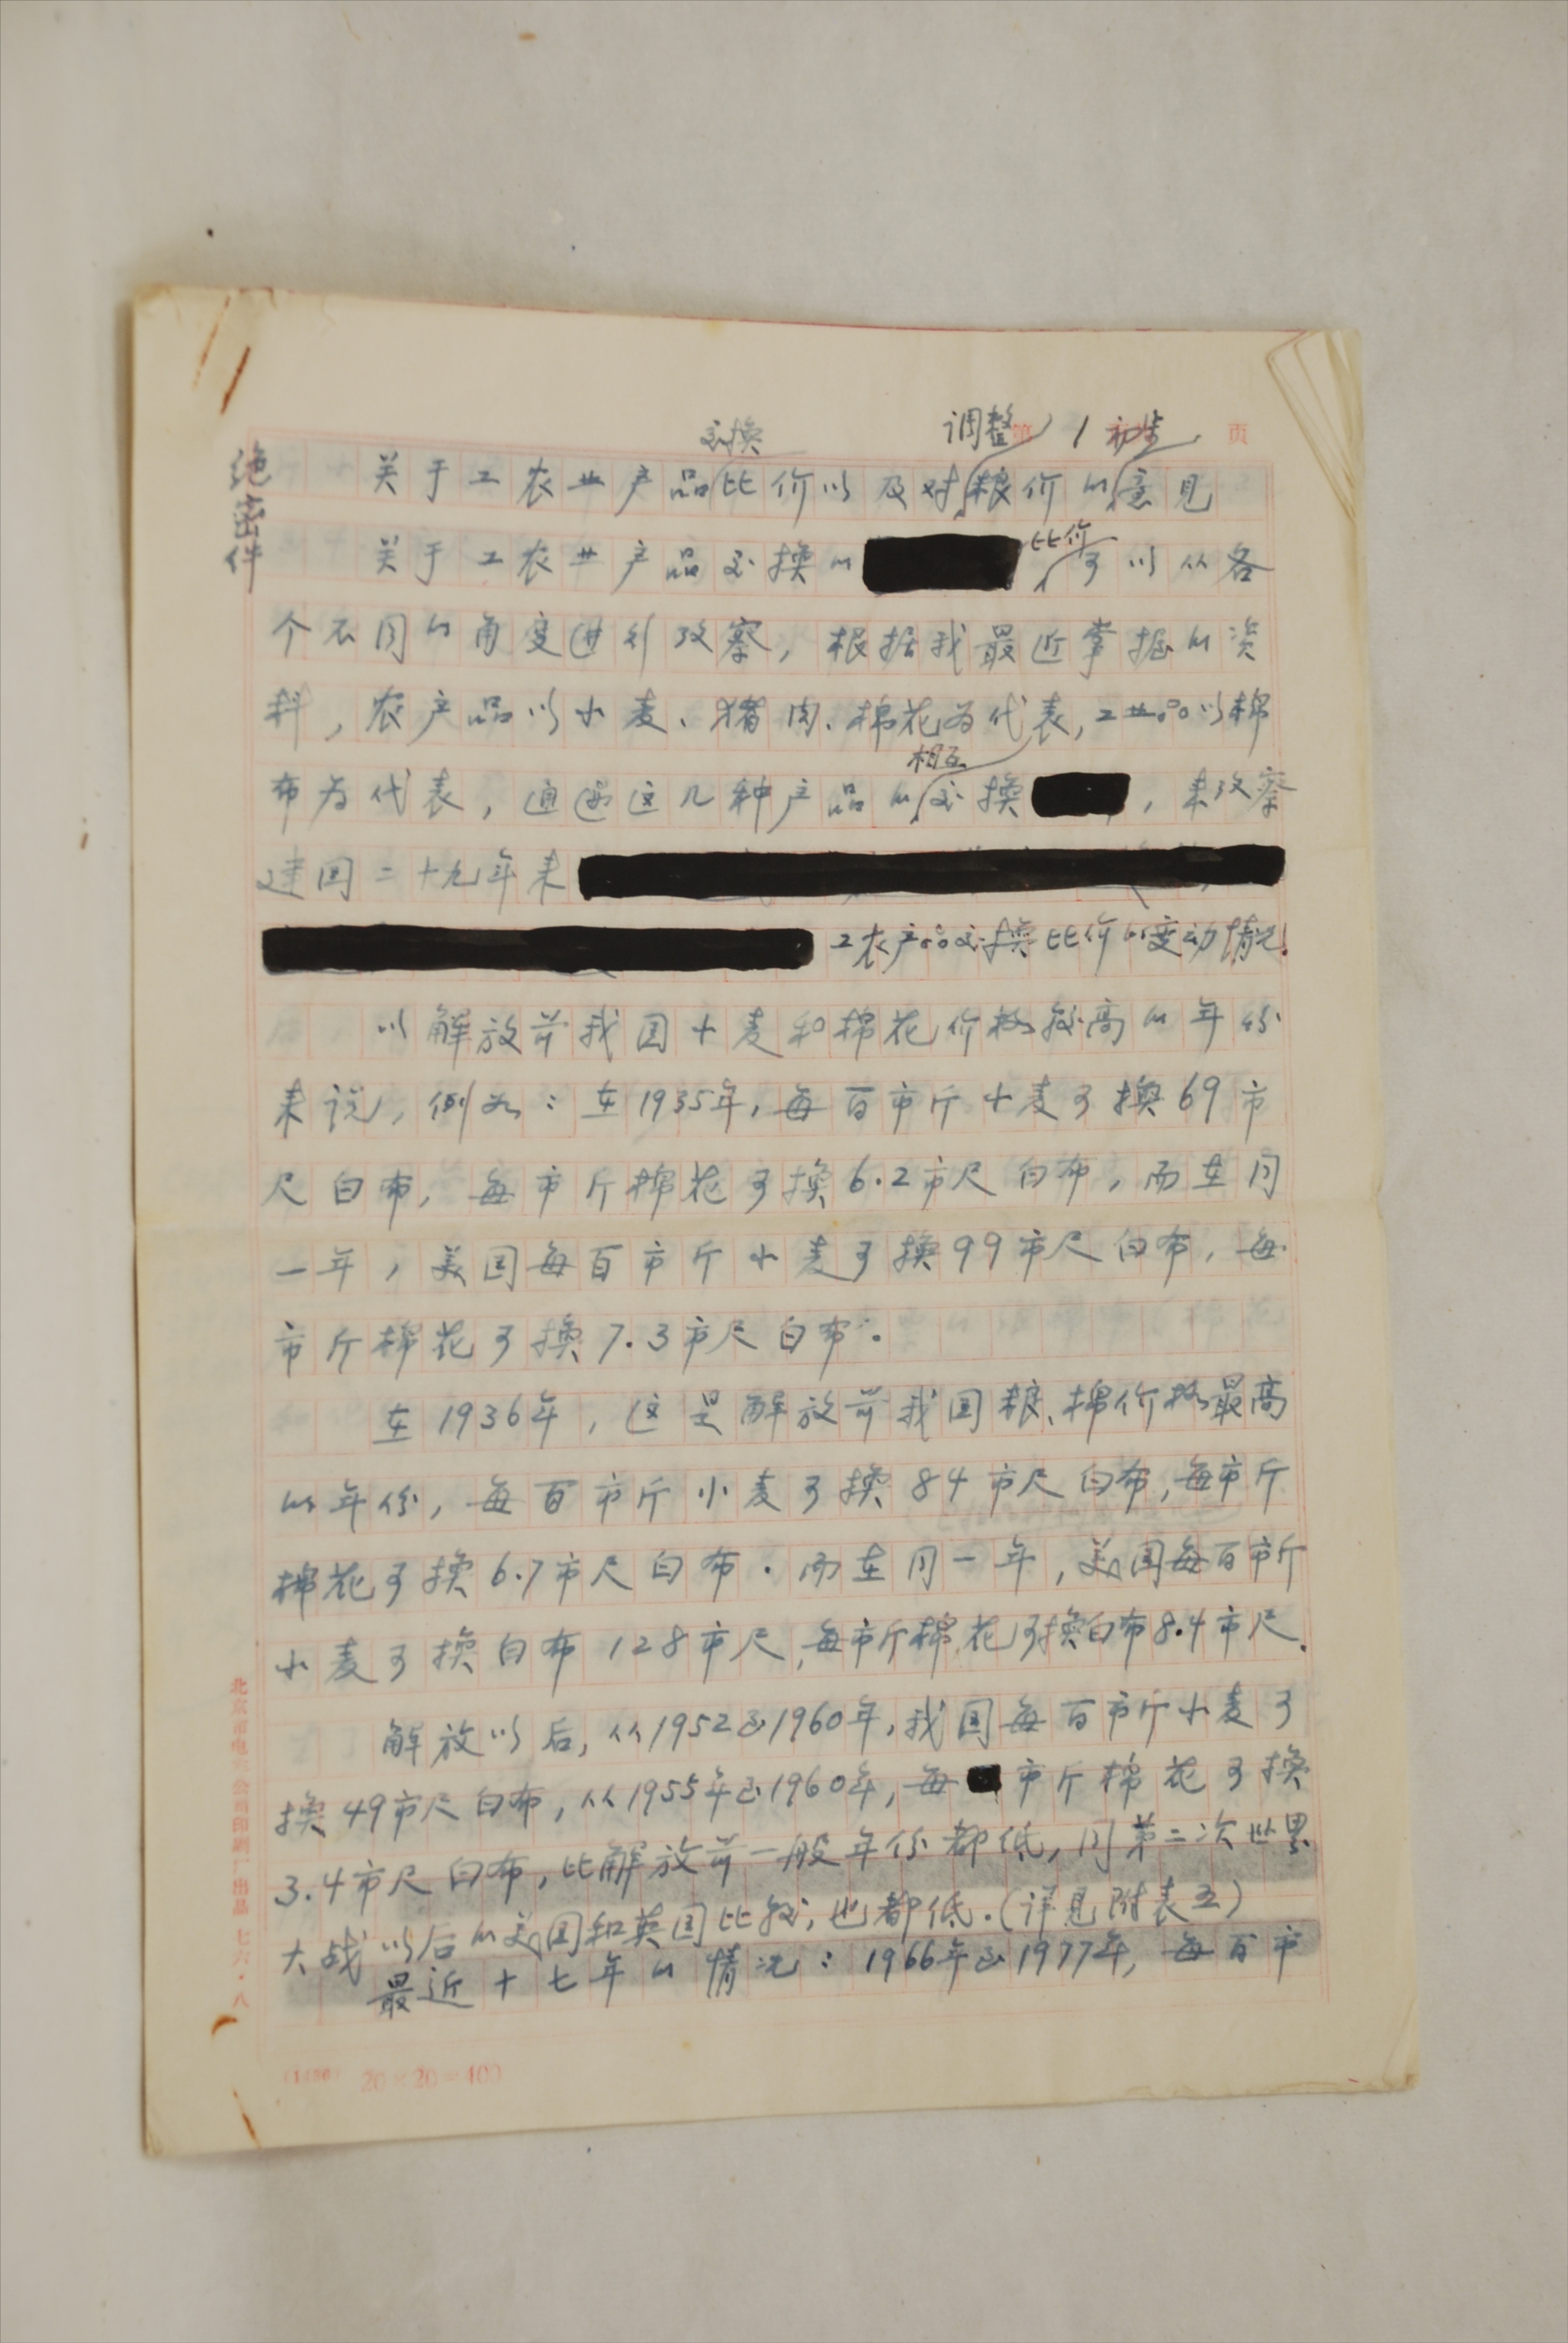 绝密件
第 1 页
关于工农业产品交换比价以及对调整粮价的初步意见
关于工农业产品交换的比价可以从各
个不同的角度进行考察，根据我最近掌握的资
料，农产品以小麦、猪肉、棉花为代表，工业品以棉
布为代表，通过这几种产品的相互交换，来考察
建国二十九年来
工农产品交换比价的变动情况.
以解放前我国小麦和棉花价格较高的年份
来说，例如：在1935年，每百市斤小麦可换69市
尺白布，每市斤棉花可换6.2市尺白布，而在同
一年，美国每百市斤小麦可换99市尺白布，每
市斤棉花可换7.3市尺白布。
在1936年，这是解放前我国粮、棉价格最高
的年份，每百市斤小麦可换84市尺白布，每市斤
棉花可换6.7市尺白布.而在同一年，美国每百市斤
小麦可换白布128市尺，每市斤棉花可换白布8.4市尺.
解放以后，从1952至1960年，我国每百市斤小麦可
换49市尺白布，从1955年至1960年，每市斤棉花可换
3.4市尺白布，比解放前一般年份都低，同第二次世界
大战以后的美国和英国比较，也都低.(详见附表五)
最近十七年的情况：1966年至1977年，每百市
20×20=400